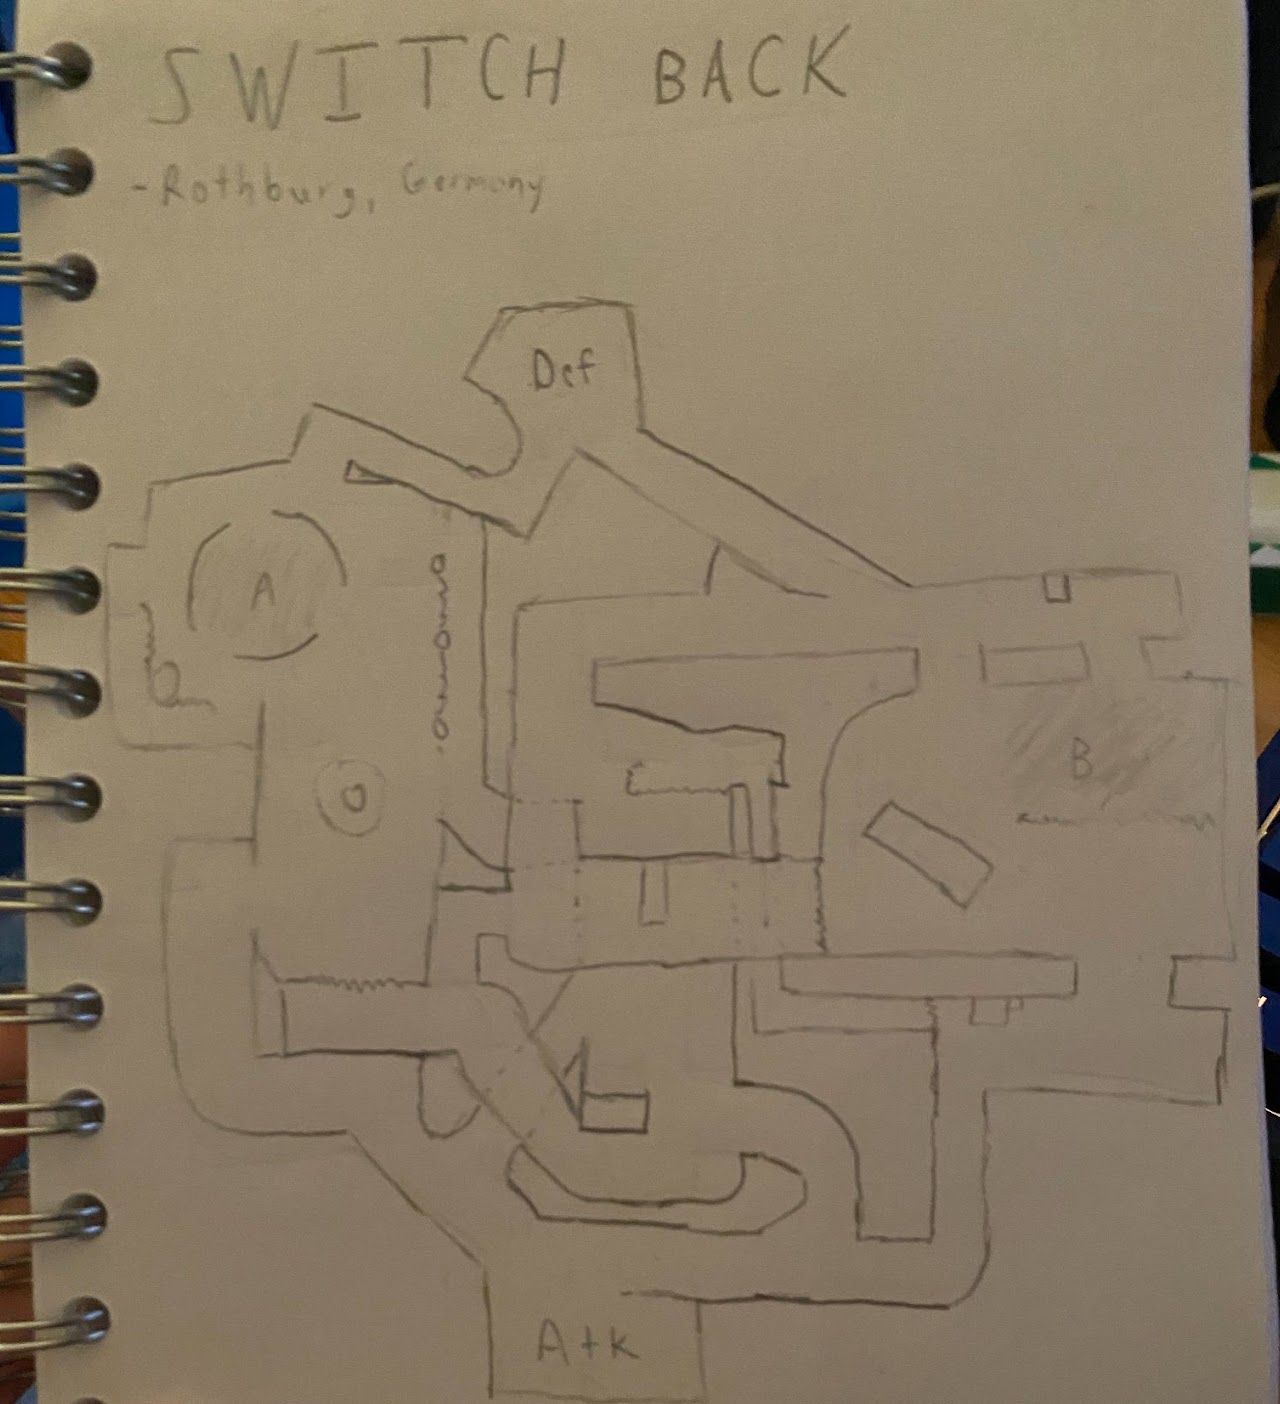 SWITCH BACK
- Rothburg, Germany
Def
A
B
A+k